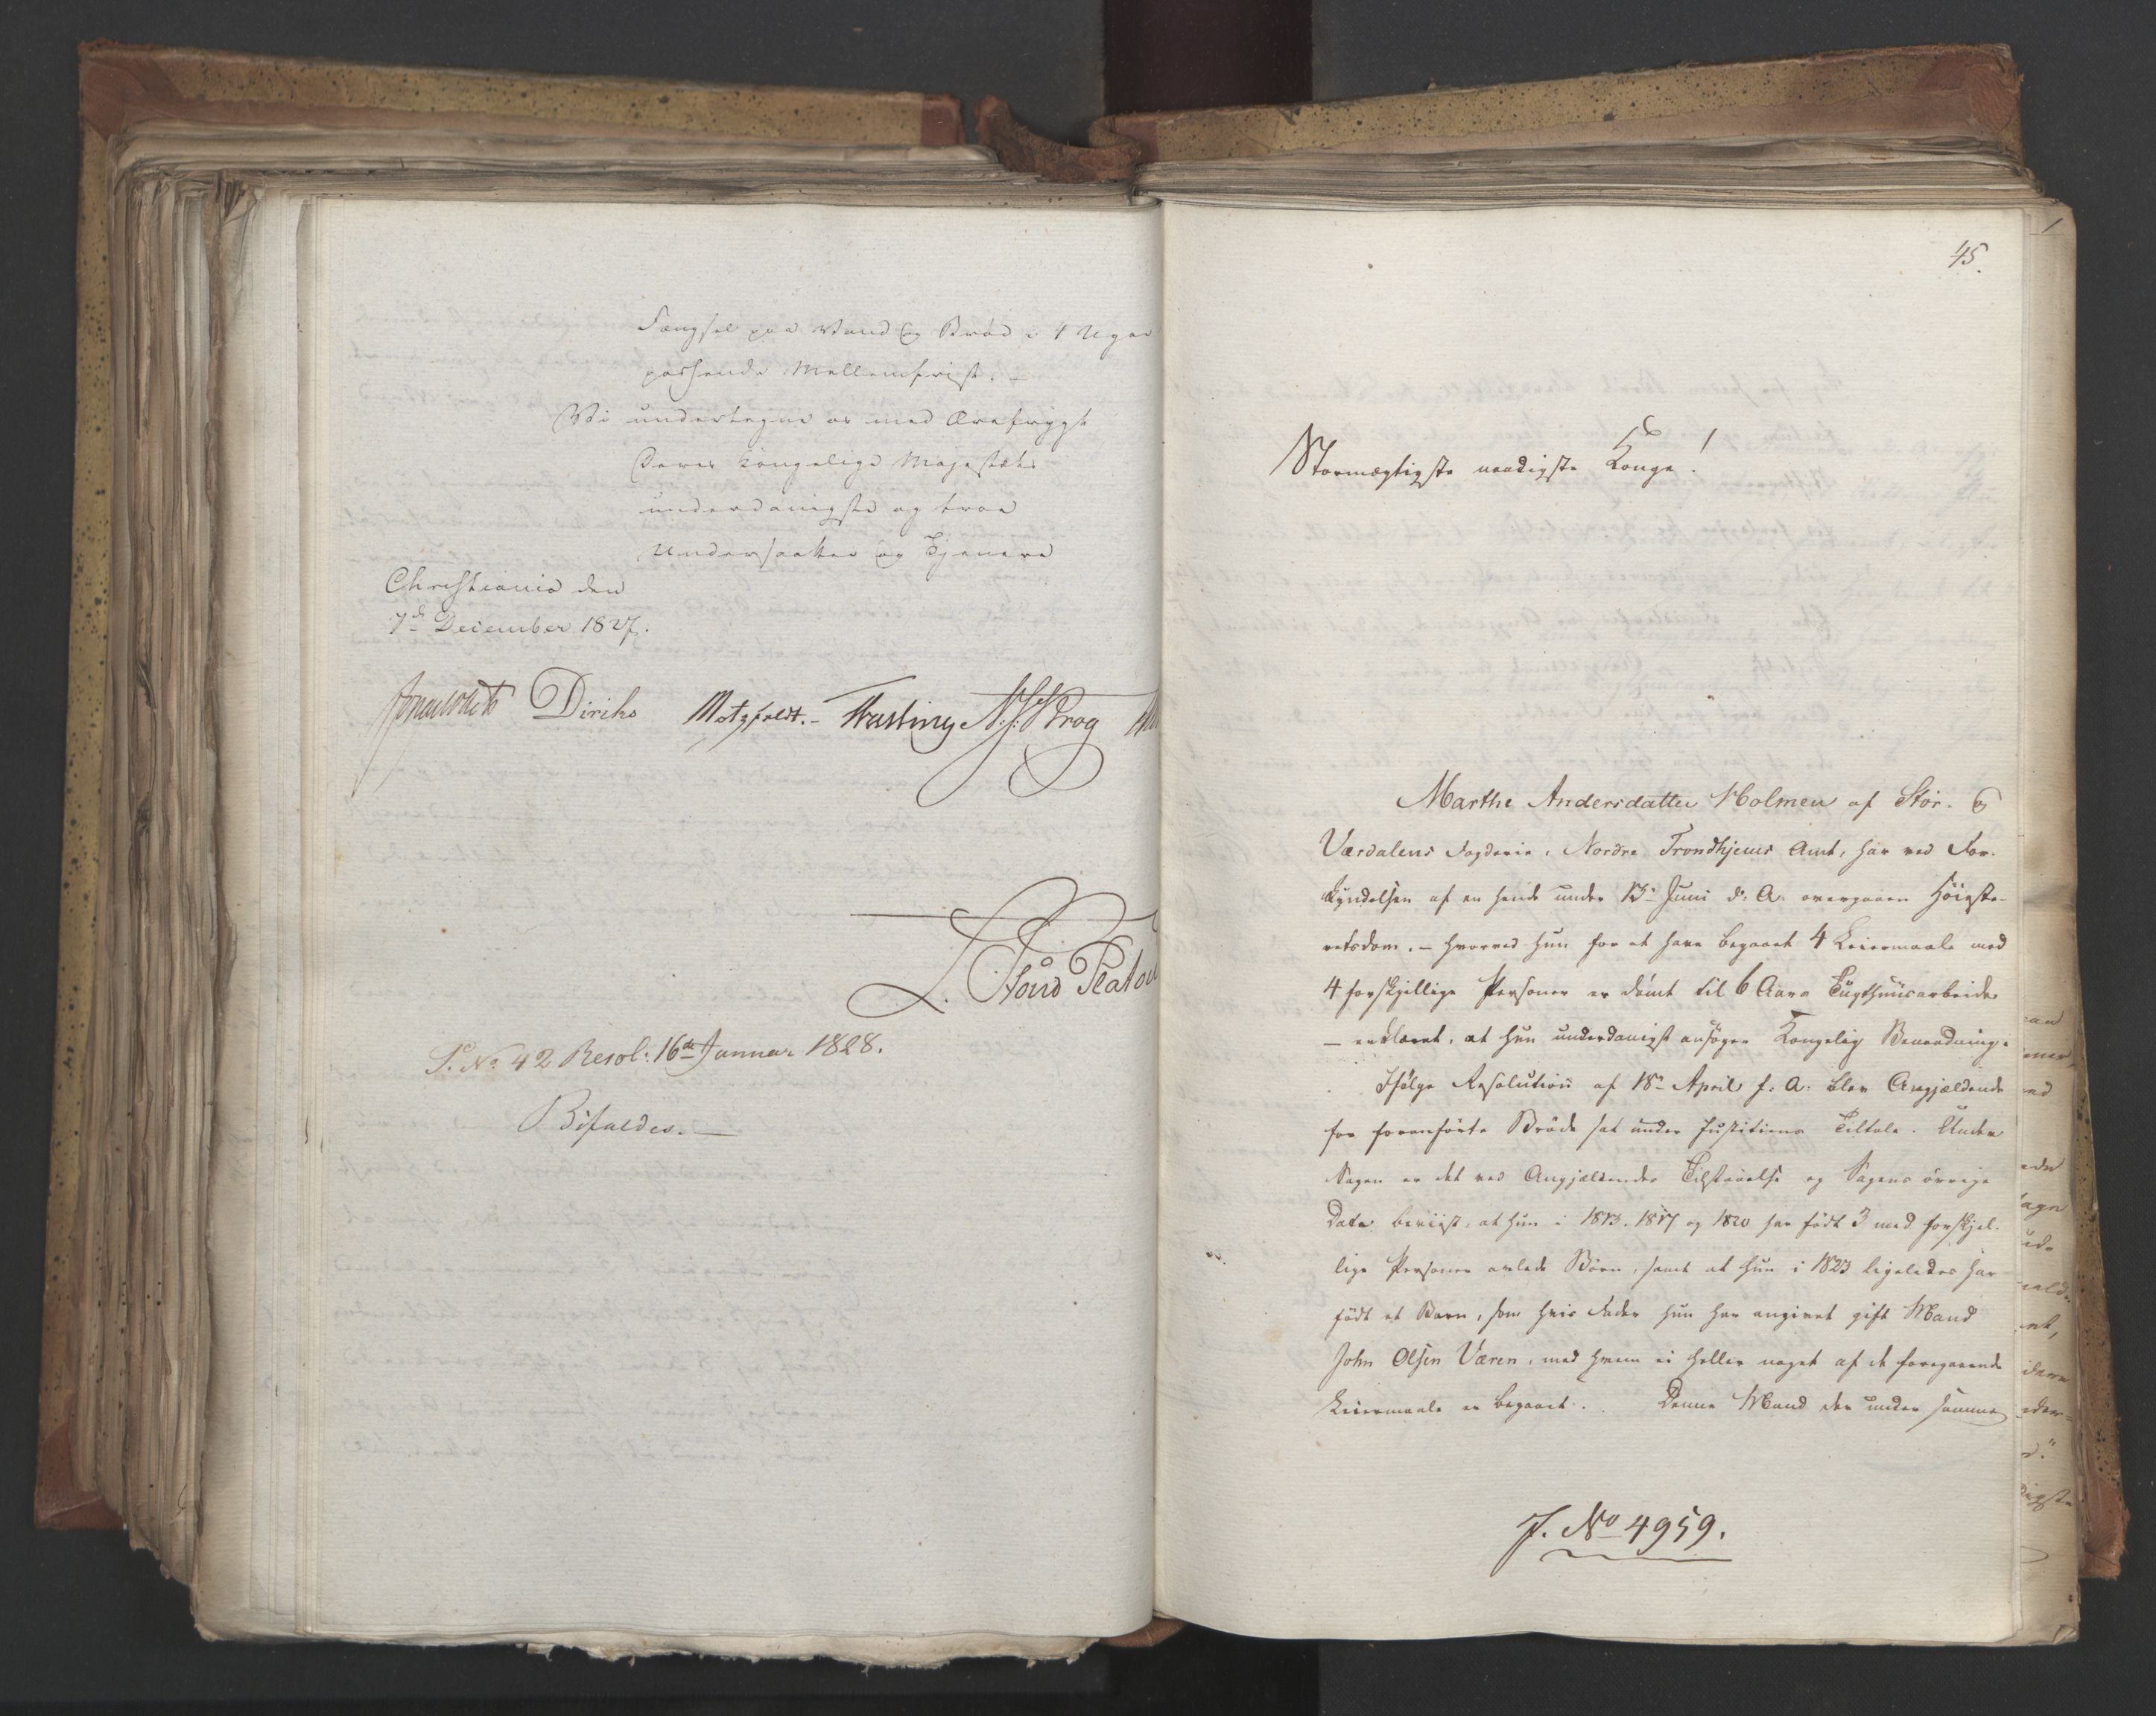 Fængsel paa Vand og Brød i 4 Uger
passende Mellemfrist. –
Vi undertegne os med Ærefrygt
Deres Kongelige Majestæts
underdanigste og troe
Undersaatter og Tjenere
Christiania den
7de December 1827.
Diriks Motzfeldt. – Fasting N. J. Krog
L. Stoud Platou
S. No 42 Resol: 16de Januar 1828.
Bifaldes. –
45.
Stormægtigste naadigste Konge!
Marthe Andersdatter Holmen af Stør- og
Værdalens Fogderie, Nordre Trondhjems Amt, har ved For-
kyndelsen af en hende under 13de Juni d: A. overgaaen Høieste-
retsdom, – hvorved hun for at have begaaet 4 Leiermaale med
4 forskjellige Personer er dømt til 6 Aars Tugthuusarbeide
– erklæret, at hun underdanigst ansøger Kongelig Benaadning.
Ifølge Resolution af 18de April f: A. blev Angjældende
for foranførte Brøde sat under Justitiens Tiltale. Under
Sagen er det ved Angjældendes Tilstaaelse og Sagens øvrige
Data beviist, at hun i 1813, 1817 og 1820 har født 3 med forskjel-
lige Personer avlede Børn, samt at hun i 1823 ligeledes har
født et Barn, som hvis Fader hun har angivet gift Mand
John Olsen Væren, med hvem ei heller noget af de foregaaende
Leiermaale er begaaet. Denne Mand der under samme
J. No 4959.